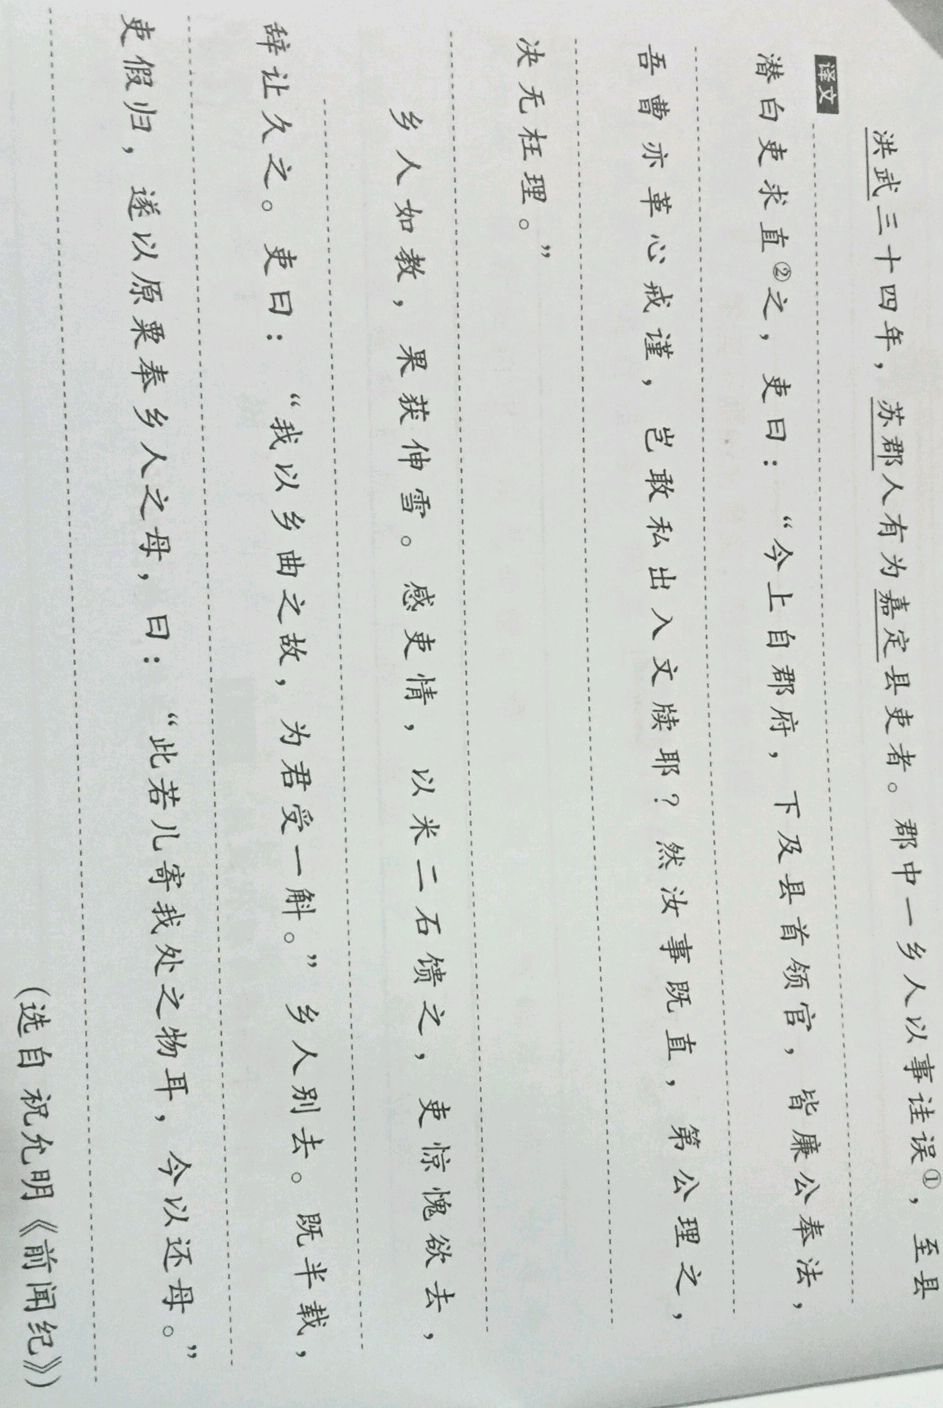 洪武三十四年，苏郡人有为嘉定县吏者。郡中一乡人以事诖误①，至县
译文
潜白吏求直②之，吏曰：“今上自郡府，下及县首领官，皆廉公奉法，
吾曹亦革心戒谨，岂敢私出入文牍耶？然汝事既直，第公理之，
决无枉理。”
乡人如教，果获伸雪。感吏情，以米二石馈之，吏惊愧欲去，
辞让久之。吏曰：“我以乡曲之故，为君受一斛。”乡人别去。既半载，
吏假归，遂以原粟奉乡人之母，曰：“此若儿寄我处之物耳，今以还母。”
（选自 祝允明《前闻纪》）